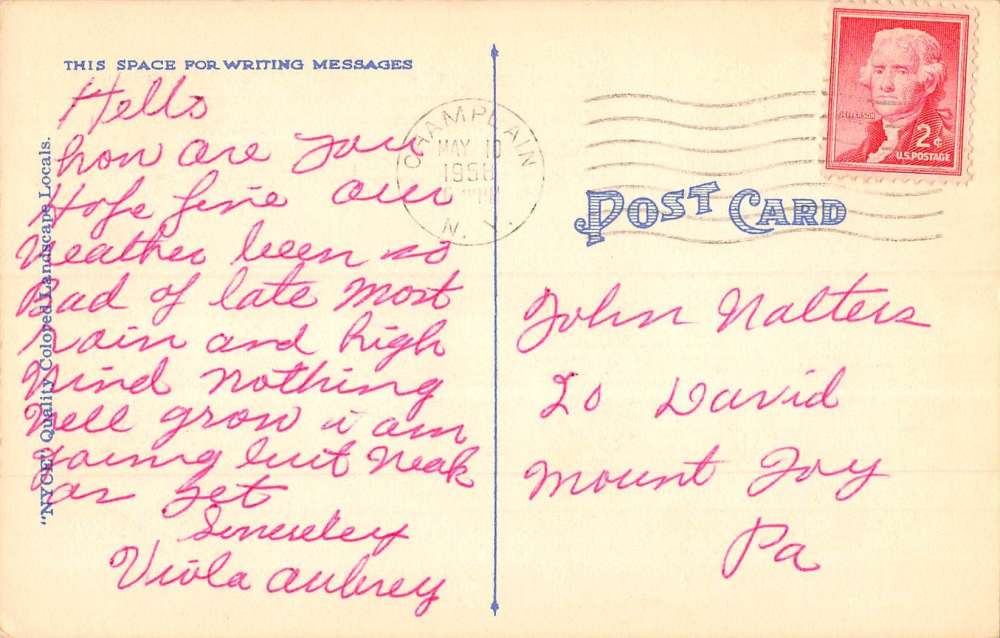 THIS SPACE FOR WRITING MESSAGES
Hello
how are you
Hope fine our
Weather been so
Bad of late most
rain and high
Wind nothing
Well grow i am
going but Weak
as yet
Sincerley
Viola aubrey
"NYCE" Quality Colored Landscape Locals.
CHAMPLAIN
MAY 10
N. Y.
JEFFERSON
2¢
U.S. POSTAGE
POST CARD
John Walters
David
Mount Joy
Pa